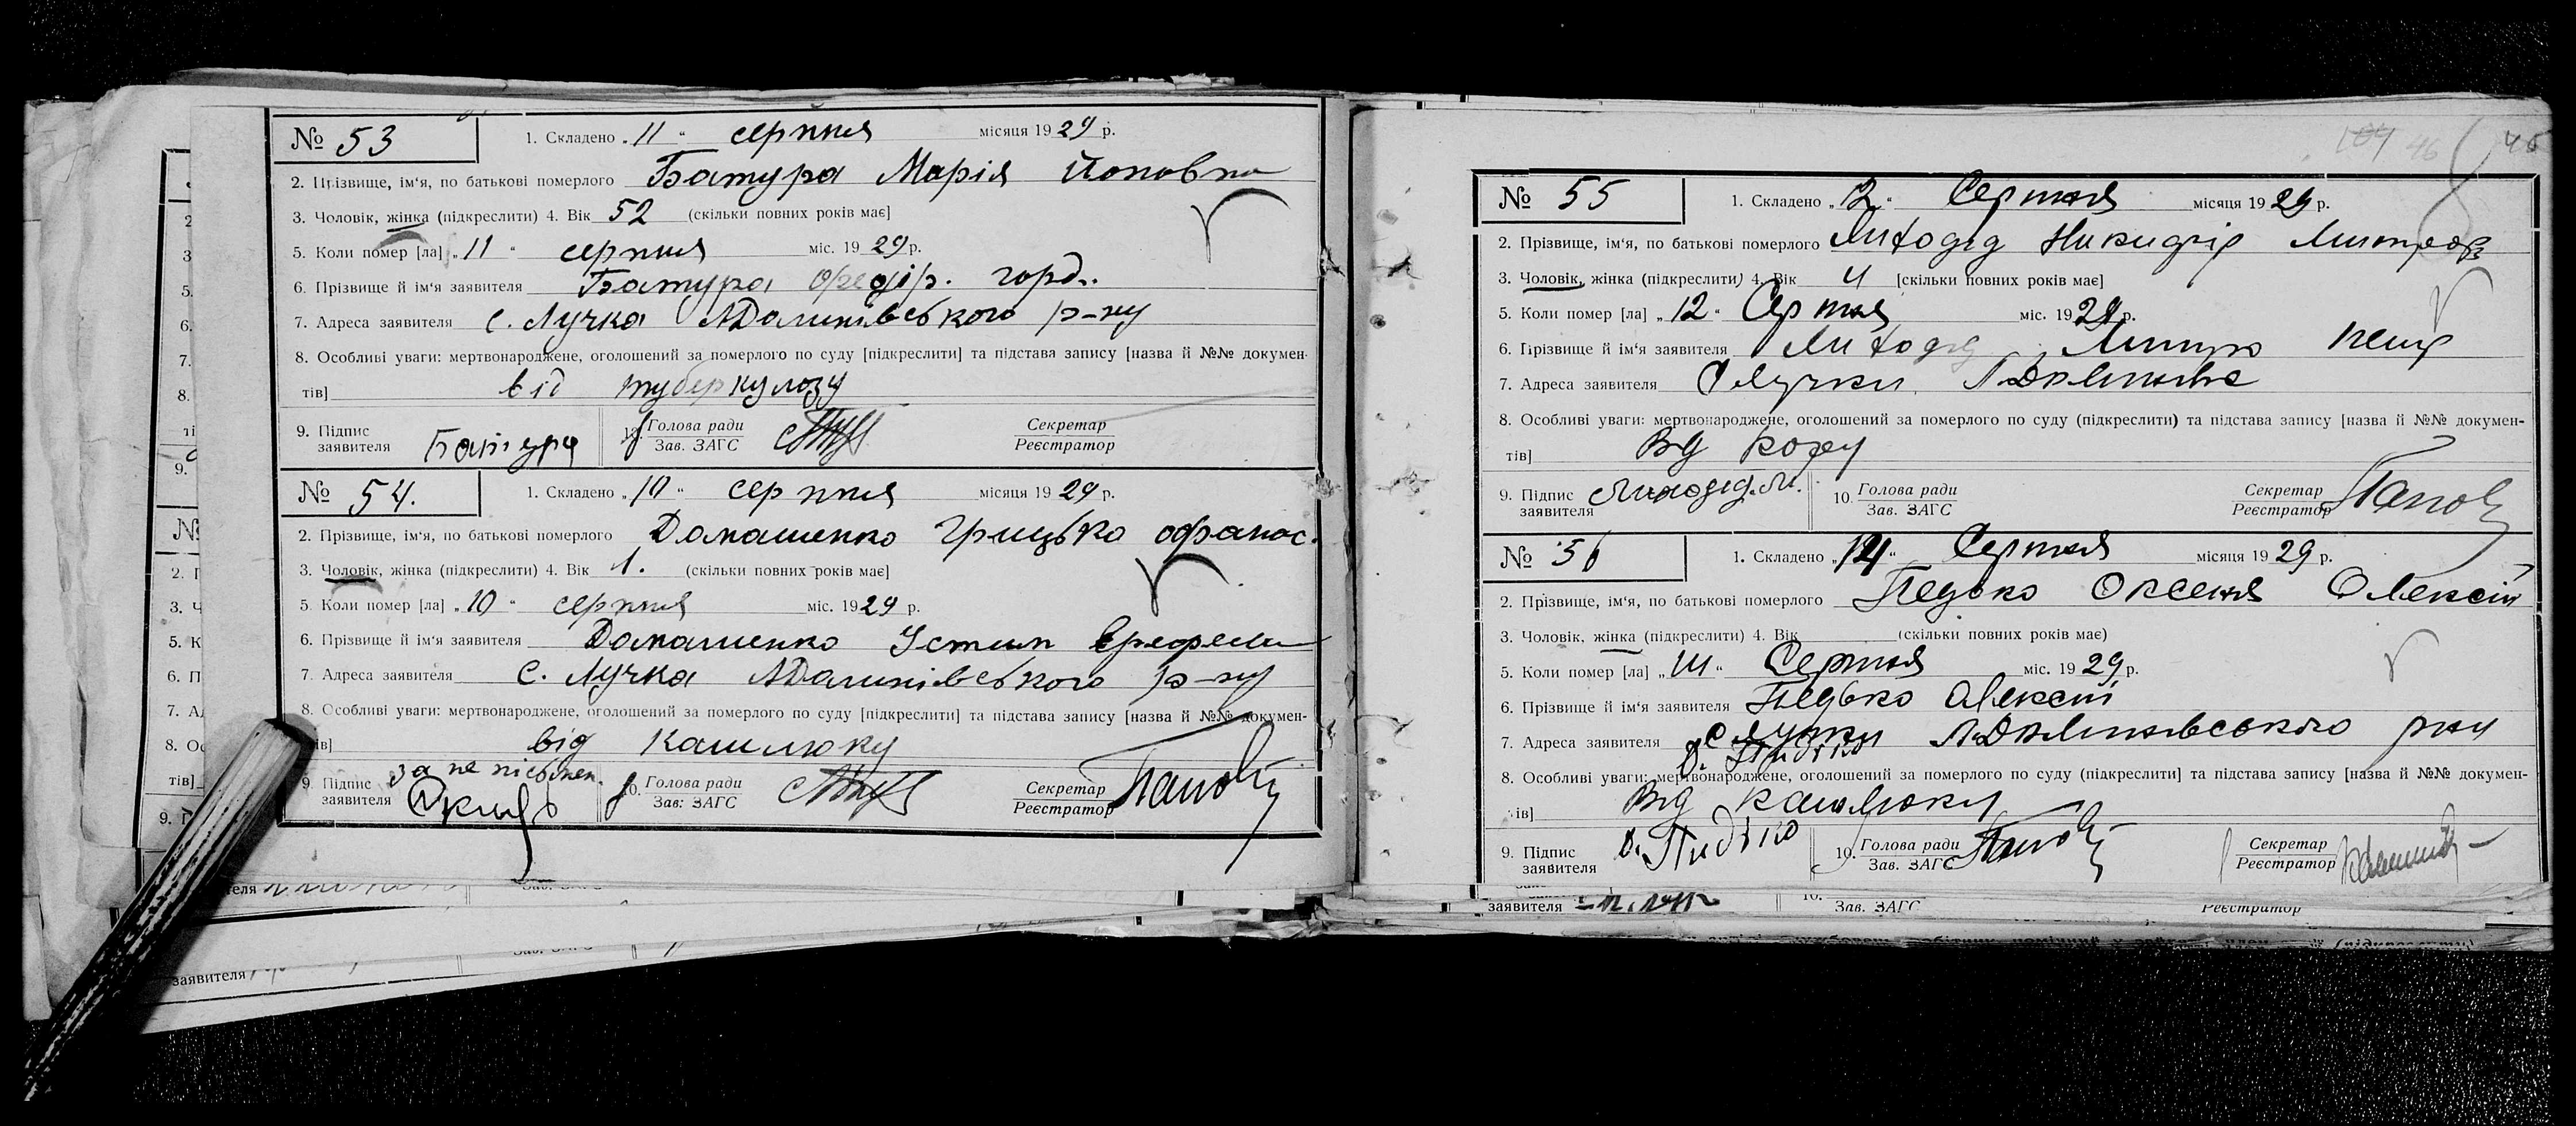 № 53 1. Складено „ 11 “ серпня місяця 19 29 р.
2. Прізвище, ім‘я, по батькові померлого Батура Марія Йоповна
3. Чоловік, жінка (підкреслити) 4. Вік 52 (скільки повних років має]
5. Коли помер [ла] „ 11 “ серпня міс. 19 29 р.
6. Прізвище й ім‘я заявителя Батура Федір. горд..
7. Адреса заявителя с. Лучка ЛДолинівського р-ну
8. Особливі уваги: мертвонароджене, оголошений за померлого по суду [підкреслити] та підстава запису [назва й №№ докумен-
тів] від туберкульозу
9. Підпис заявителя Батура 10. Голова ради Зав. ЗАГС Секретар Реєстратор
№ 54. 1. Складено „ 10 “ серпня місяця 19 29 р.
2. Прізвище, ім‘я, по батькові померлого Домашенко Грицько офанас.
3. Чоловік, жінка (підкреслити) 4. Вік 1. (скільки повних років має]
5. Коли помер [ла] „ 10 “ серпня міс. 19 29 р.
6. Прізвище й ім‘я заявителя Домашенко Устим
7. Адреса заявителя с. Лучка ЛДолинівського р-ну
8. Особливі уваги: мертвонароджене, оголошений за померлого по суду [підкреслити] та підстава запису [назва й №№ докумен-
ів] від кашлюку
9. Підпис заявителя за не письмен. 10. Голова ради Зав: ЗАГС Секретар Реєстратор
заявителя
46 45
№ 55 1. Складено „ 12 “ Серпня місяця 19 29 р.
2. Прізвище, ім‘я, по батькові померлого Лиходід Никифір Митров
3. Чоловік, жінка (підкреслити) 4. Вік 4 [скільки повних років має]
5. Коли помер [ла] „ 12 “ Серпня міс. 19 29 р.
6. Прізвище й ім‘я заявителя Лиходід Митро
7. Адреса заявителя с Лучки
8. Особливі уваги: мертвонароджене, оголошений за померлого по суду (підкреслити) та підстава запису [назва й №№ докумен-
тів] Від кору
9. Підпис заявителя Лиходід. М. 10. Голова ради Зав. ЗАГС Секретар Реєстратор
№ 56 1. Складено „ 14 “ Серпня місяця 19 29 р.
2. Прізвище, ім‘я, по батькові померлого Педько Оксеня Олексій
3. Чоловік, жінка (підкреслити) 4. Вік (скільки повних років має)
5. Коли помер [ла] „ 14 “ Серпня міс. 19 29 р.
6. Прізвище й ім‘я заявителя Педько Олексій
7. Адреса заявителя с Лучки ЛДолинівського рну
8. Особливі уваги: мертвонароджене, оголошений за померлого по суду (підкреслити] та підстава запису [назва й №№ докумен-
ів] Від кашлюку
9. Підпис заявителя О. Пидько 10. Голова ради Зав. ЗАГС Секретар Реєстратор
заявителя Зав. ЗАГС Реєстратор